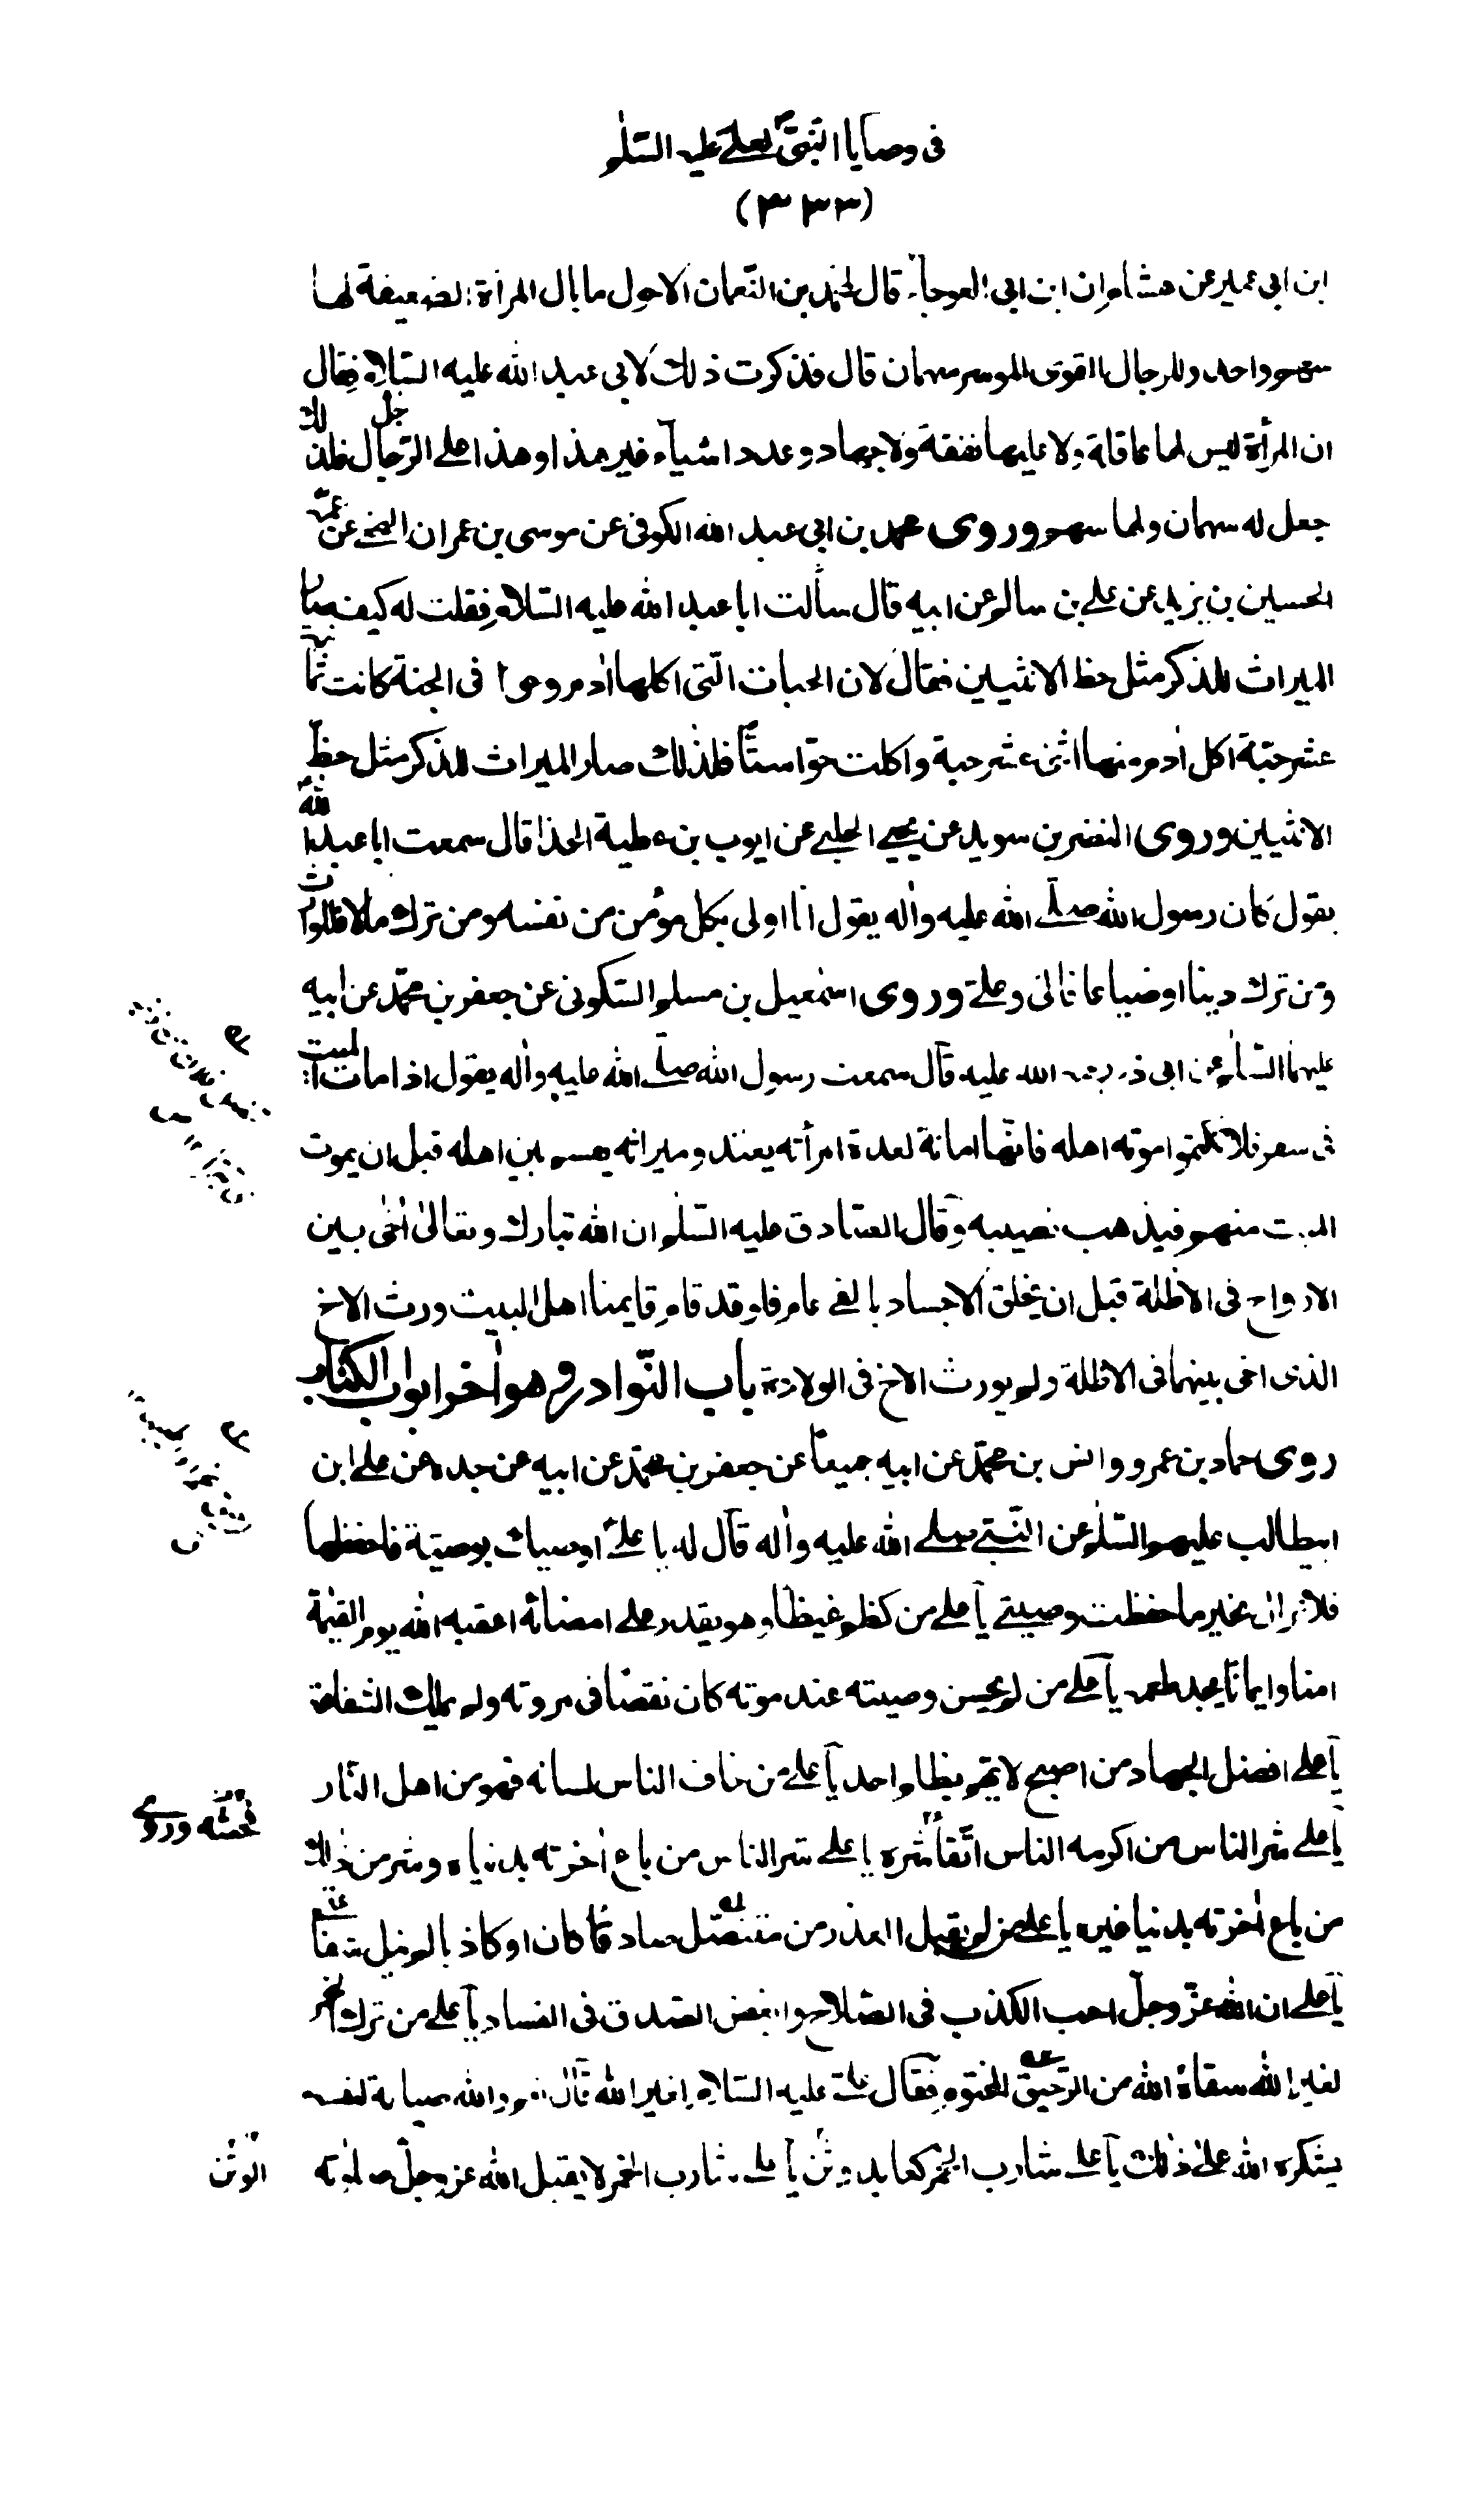 فى وصايا النبىّ لعلى عليه السّلم
(٣٣٣)
ابن ابى عمير عن هشام ان ابن ابى العوجآء قال لمحمّد بن النّعمان الاحول ما بال المرأة الضعيفة لها
سهم واحد وللرجال القوى الموسر سهمان قال فذكرت ذلك لابى عبد الله عليه السّلام فقال
ان المرأة ليس لها عاقلة ولا عليها نفقة ولا جهاد وعدد اشيآء غير هذا وهذا على الرّجال فلذلك
جعل له سهمان ولها سهم وروى محمد بن ابى عبد الله الكوفى عن موسى بن عمران النخعى عن عمّه
الحسين بن يزيد عن على بن سالم عن ابيه قال سألت ابا عبد الله عليه السّلام فقلت له كيف صار
الميراث للذكر مثل حظ الانثيين فقال لان الحبات الّتى اكلها اٰدم وحوا فى الجنة كانت ثمانية
عشر حبّة اكل اٰدم منها اثنى عشر حبة واكلت حوّا ستّا فلذلك صار الميراث للذكر مثل حظّ
الانثيين وروى النضر بن سويد عن يحيى الحلبى عن ايوب بن عطية الحذا قال سمعت ابا عبد الله
يقول كان رسول الله صلّى الله عليه واٰله يقول انا اولى بكل مؤمن من نفسه ومن ترك مالا فللوارث
ومن ترك دينا او ضياعا فالىّ وعلىّ وروى اسمٰعيل بن مسلم السّكونى عن جعفر بن محمّد عن ابيه
عليهما السّلم عن ابى ذر رحمة الله عليه قال سمعت رسول الله صلّى الله عليه واٰله يقول اذا مات الميت
فى سفر فلا تكتموا موته اهله فانّها امانة لعدة امرأته يعتد وميراثه يقسم بين اهله قبل ان يموت
الميت منهم فيذهب نصيبه وقال الصّادق عليه السّلم ان الله تبارك وتعالىٰ اٰخىٰ بين
الارواح فى الاظلة قبل ان يخلق الاجساد بالفى عام فلو قد قام قايمنا اهل البيت ورث الاخ
الذى اخى بينهما فى الاظلة ولم يورث الاخ فى الولادة باب النّوادر وهو اٰخر ابواب الكتاب
روى حماد بن عمرو وانس بن محمّد عن ابيه جميعا عن جعفر بن محمّد عن ابيه عن جده عن على ابن
ابيطالب عليهم السّلم عن النّبىّ صلى الله عليه واٰله قال له يا علىّ اوصيك بوصيّة فاحفظها
فلا تزال بخير ما حفظت وصيتى يا على من كظم غيظا وهو يقدر على امضائه اعقبه الله يوم القيٰمة
امنا وايمانا يجد طعمه يا على من لم يحسن وصيته عند موته كان نقصا فى مروته ولم يملك الشفاعة
يا على افضل الجهاد من اصبح لا يهمّ بظلم احد يا على من خاف الناس لسانه فهو من اهل النّار
يا على شر الناس من اكرمه الناس اتّقآء شره يا على شر الناس من باع اٰخرته بدنياه وشر من ذلك
فحشه وروى
من باع اٰخرته بدنيا غيره يا على من لم يقبل العذر من متنصّل صادقا كان او كاذبا لم ينل شفاعتى
يا على ان الله عزّ وجلّ احب الكذب فى الصّلاح وابغض الصّدق فى الفساد يا على من ترك الخمر
لغير الله سقاه الله من الرّحيق المختوم فقال علىّ عليه السّلام لغير الله قال نعم والله صيانة لنفسه
يشكره الله على ذلك يا على شارب الخمر كعابد وثن يا على شارب الخمر لا يقبل الله عز وجلّ صلوٰته
الوثن